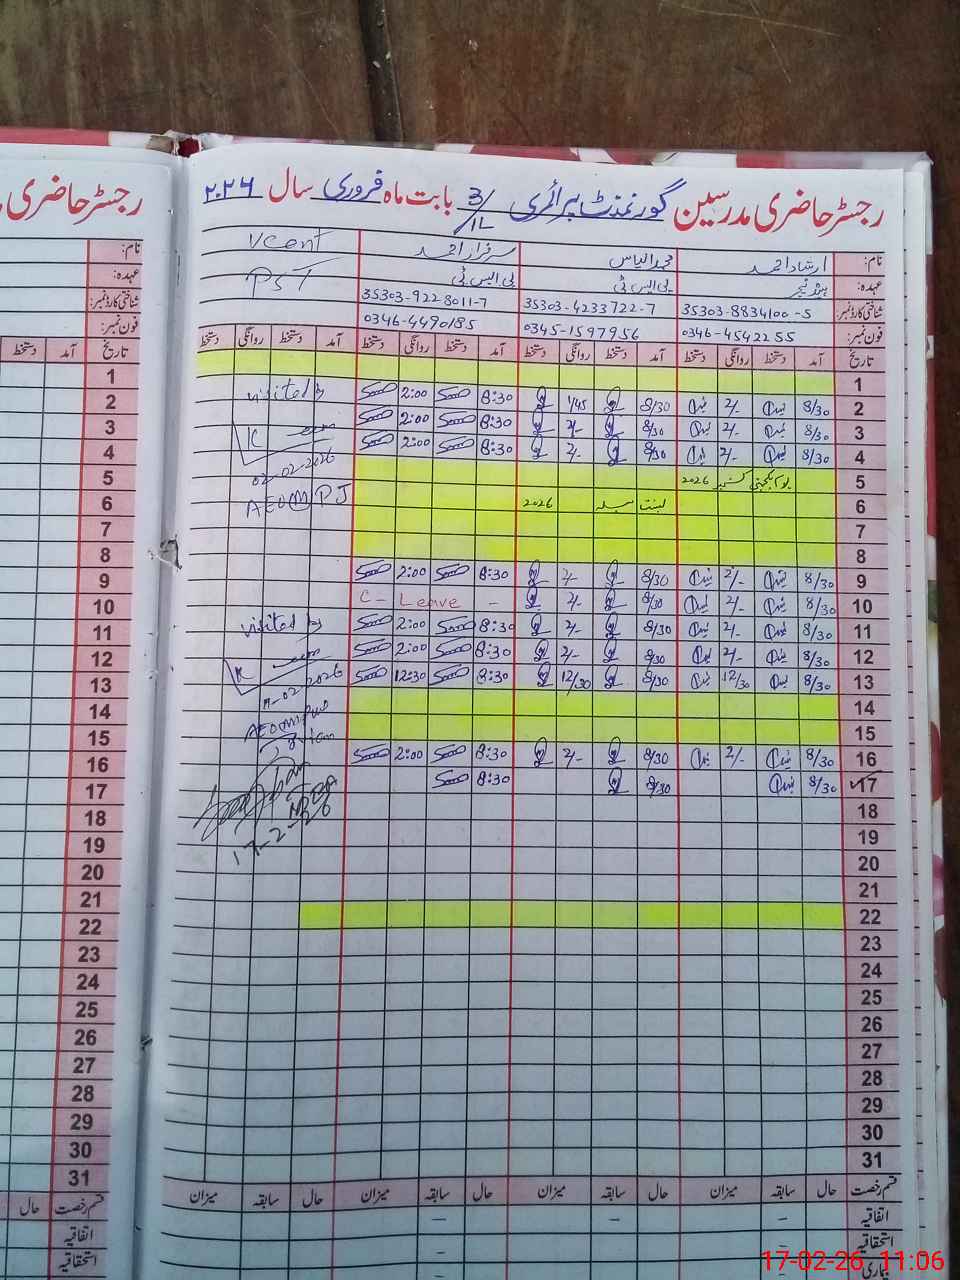 رجسٹر حاضری مدرسین گورنمنٹ پرائمری 3/1L بابت ماہ فروری سال ۲۰۲۶
نام: ارشاد احمد محمد الیاس سرفراز احمد Vcent
عہدہ: ہیڈ ٹیچر پی ایس ٹی پی ایس ٹی PST
شناختی کارڈ نمبر: 35303-8834100-5 35303-4233722-7 35303-9228011-7
فون نمبر: 0346-4542255 0345-1597956 0346-4490185
تاریخ آمد دستخط روانگی دستخط آمد دستخط روانگی دستخط آمد دستخط روانگی دستخط آمد دستخط روانگی دستخط
1
2 8/30 2/- 8/30 1/45 8:30 2:00 visited by
3 8/30 2/- 8/30 2/- 8:30 2:00
4 8/30 2/- 8/30 2/- 8:30 2:00 02-02-2026
5 یوم یکجہتی کشمیر 2026
6 بسنت میلہ 2026 AEO(M) PJ
7
8
9 8/30 2/- 8/30 2/- 8:30 2:00
10 8/30 2/- 8/30 2/- C - Leave -
11 8/30 2/- 8/30 2/- 8:30 2:00 visited by
12 8/30 2/- 8/30 2/- 8:30 2:00
13 8/30 12/30 8/30 12/30 8:30 12:30 11-02-2026
14
15
16 8/30 2/- 8/30 2/- 8:30 2:00
17 8/30 8/30 8:30
18
17-2-26
19
20
21
22
23
24
25
26
27
28
29
30
31
قسم رخصت حال سابقہ میزان حال سابقہ میزان حال سابقہ میزان حال سابقہ میزان
اتفاقیہ - - -
استحقاقیہ - -
بیماری
رجسٹر حاضری
نام:
عہدہ:
شناختی کارڈ نمبر:
فون نمبر:
تاریخ آمد دستخط
1
2
3
4
5
6
7
8
9
10
11
12
13
14
15
16
17
18
19
20
21
22
23
24
25
26
27
28
29
30
31
قسم رخصت حال
اتفاقیہ
استحقاقیہ
17-02-26, 11:06